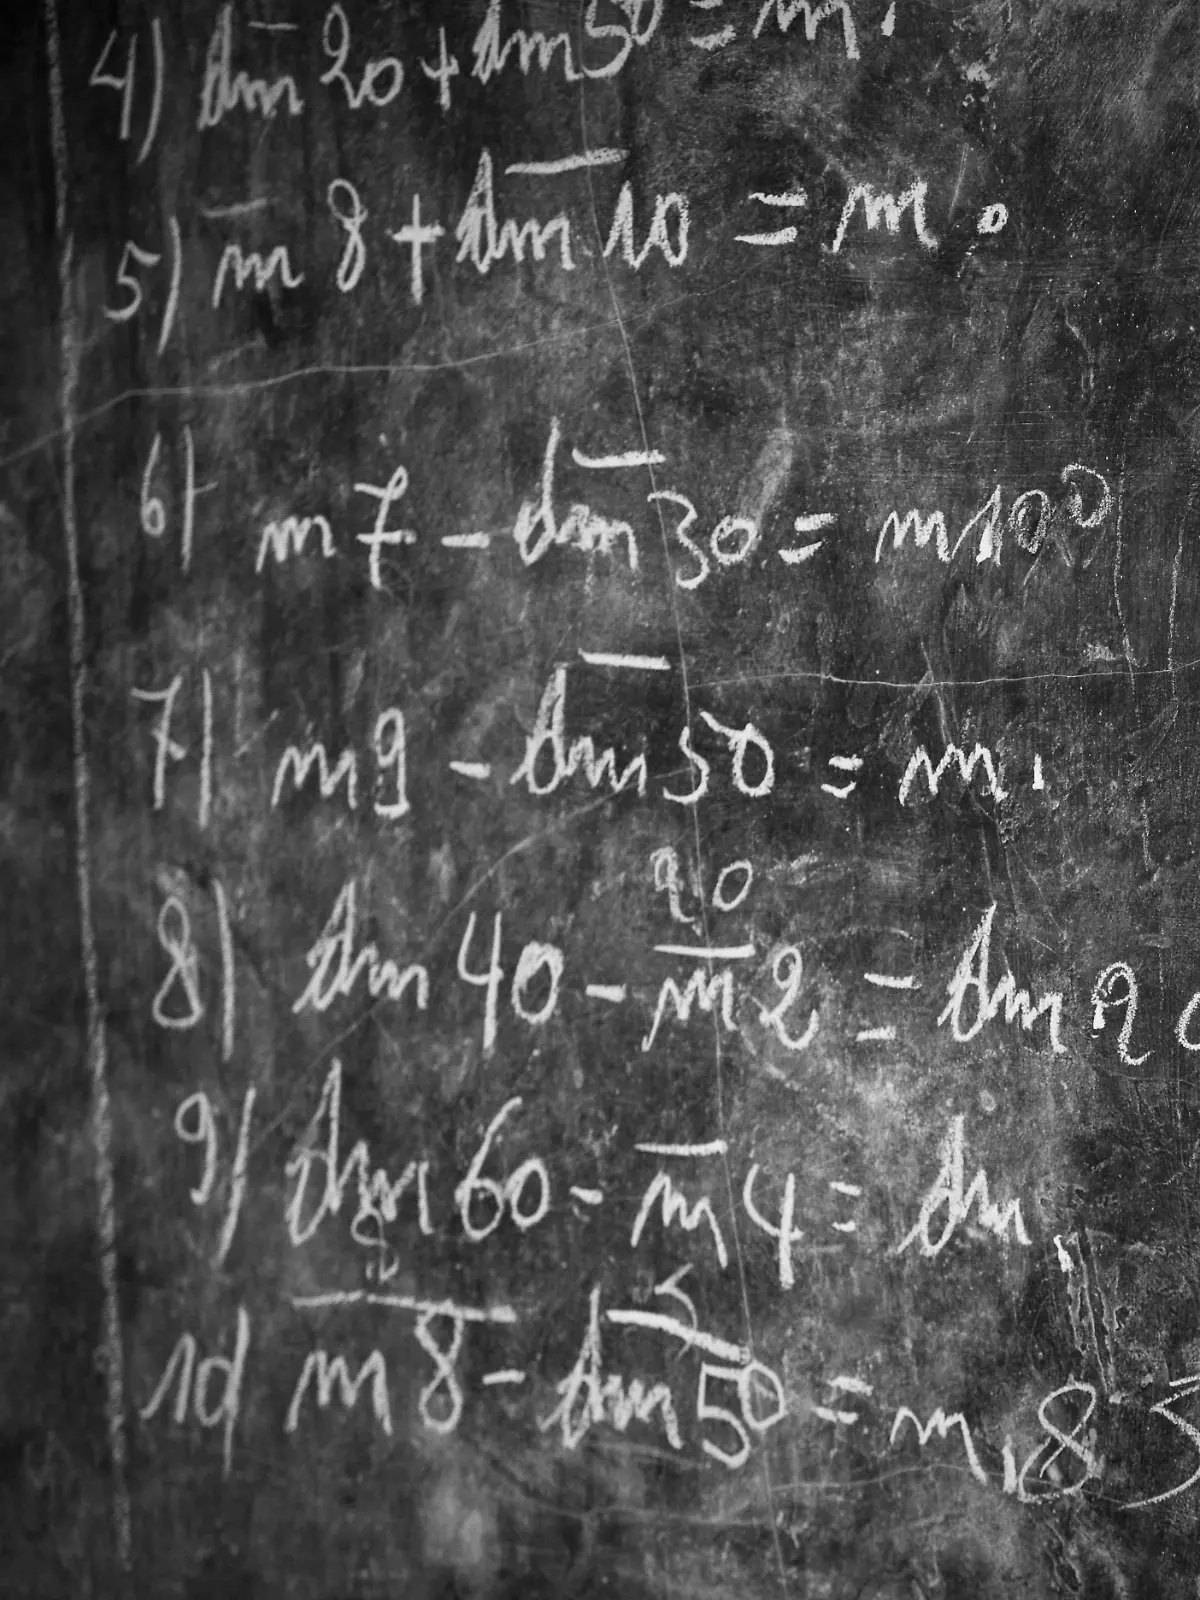 4) dm 20 + dm 50 = m.
5) m 8 + dm 10 = m.
6) m 7 - dm 30 = m 100
7) m 9 - dm 50 = m.
20
8) dm 40 - m 2 = dm 20
9) dm 60 - m 4 = dm
8 5
10) m 8 - dm 50 = m. 8 3